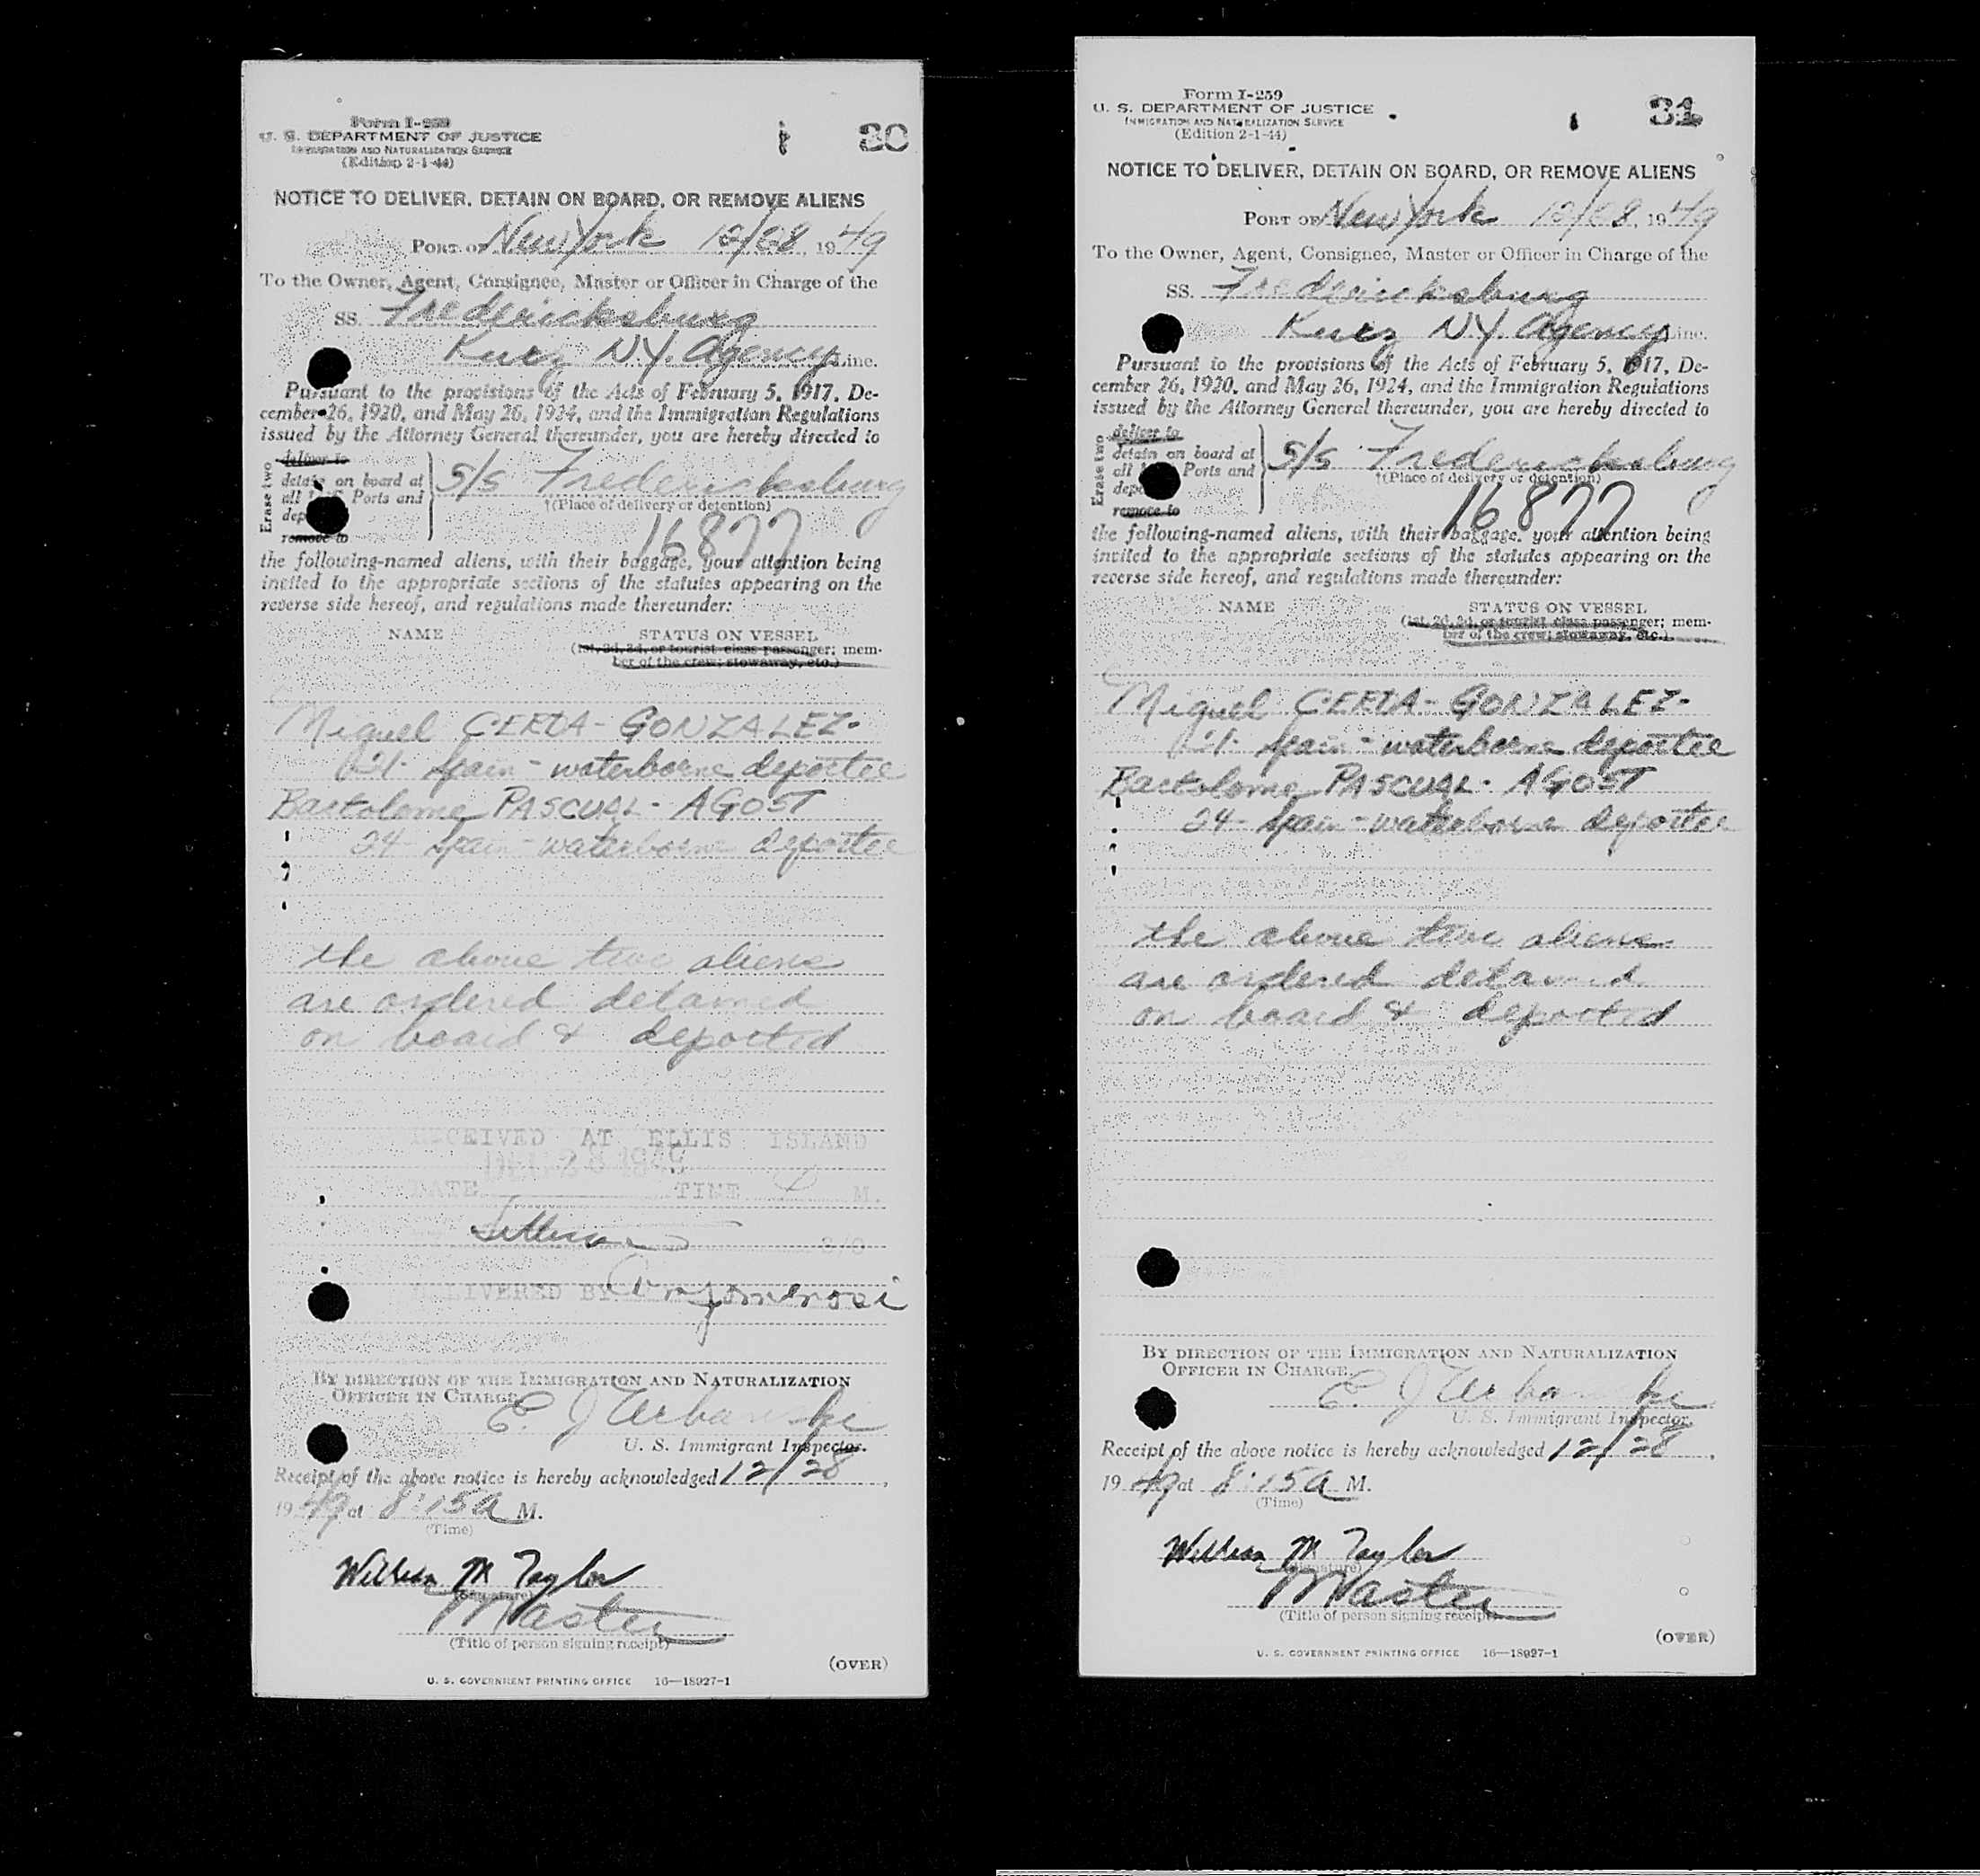 Form I-259
U. S. DEPARTMENT OF JUSTICE
IMMIGRATION AND NATURALIZATION SERVICE
(Edition 2-1-44)
30
NOTICE TO DELIVER, DETAIN ON BOARD, OR REMOVE ALIENS
PORT OF New York 12/28, 1949
To the Owner, Agent, Consignee, Master or Officer in Charge of the
SS. Fredericksburg
Kurz N.Y. Agency Line.
Pursuant to the provisions of the Acts of February 5, 1917, De-
cember 26, 1920, and May 26, 1924, and the Immigration Regulations
issued by the Attorney General thereunder, you are hereby directed to
Erase two
deliver to
detain on board at
all Ports and
dep
remove to
S/S Fredericksburg
†(Place of delivery or detention)
16877
the following-named aliens, with their baggage, your attention being
invited to the appropriate sections of the statutes appearing on the
reverse side hereof, and regulations made thereunder:
NAME STATUS ON VESSEL
(1st, 2d, 3d, or tourist class passenger; mem-
ber of the crew; stowaway, etc.)
Miguel CERDA-GONZALEZ-
21- Spain - waterborne deportee
Bartolome PASCUAL-AGOST
24 Spain - waterborne deportee
the above two aliens
are ordered detained
on board & deported
RECEIVED AT ELLIS ISLAND
DEC 28 1949
DATE TIME M.
DELIVERED BY
BY DIRECTION OF THE IMMIGRATION AND NATURALIZATION
OFFICER IN CHARGE.
E. J Urbanski
U. S. Immigrant Inspector.
Receipt of the above notice is hereby acknowledged 12/28,
1949 at 8:15 A M.
(Time)
William M Taylor
(Signature)
Master
(Title of person signing receipt)
(OVER)
U. S. GOVERNMENT PRINTING OFFICE 16—18927-1
Form I-259
U. S. DEPARTMENT OF JUSTICE
IMMIGRATION AND NATURALIZATION SERVICE
(Edition 2-1-44)
31
NOTICE TO DELIVER, DETAIN ON BOARD, OR REMOVE ALIENS
PORT OF New York 12/28, 1949
To the Owner, Agent, Consignee, Master or Officer in Charge of the
SS. Fredericksburg
Kurz N.Y. Agency Line.
Pursuant to the provisions of the Acts of February 5, 1917, De-
cember 26, 1920, and May 26, 1924, and the Immigration Regulations
issued by the Attorney General thereunder, you are hereby directed to
Erase two
deliver to
detain on board at
all Ports and
dep
remove to
S/S Fredericksburg
†(Place of delivery or detention)
16877
the following-named aliens, with their baggage, your attention being
invited to the appropriate sections of the statutes appearing on the
reverse side hereof, and regulations made thereunder:
NAME STATUS ON VESSEL
(1st, 2d, 3d, or tourist class passenger; mem-
ber of the crew; stowaway, etc.)
Miguel CERDA-GONZALEZ-
21- Spain - waterborne deportee
Bartolome PASCUAL-AGOST
24- Spain - waterborne deportee
the above two aliens
are ordered detained
on board & deported
BY DIRECTION OF THE IMMIGRATION AND NATURALIZATION
OFFICER IN CHARGE.
E. J Urbanski
U. S. Immigrant Inspector.
Receipt of the above notice is hereby acknowledged 12/28,
1949 at 8:15 A M.
(Time)
William M Taylor
(Signature)
Master
(Title of person signing receipt)
(OVER)
U. S. GOVERNMENT PRINTING OFFICE 16—18927-1